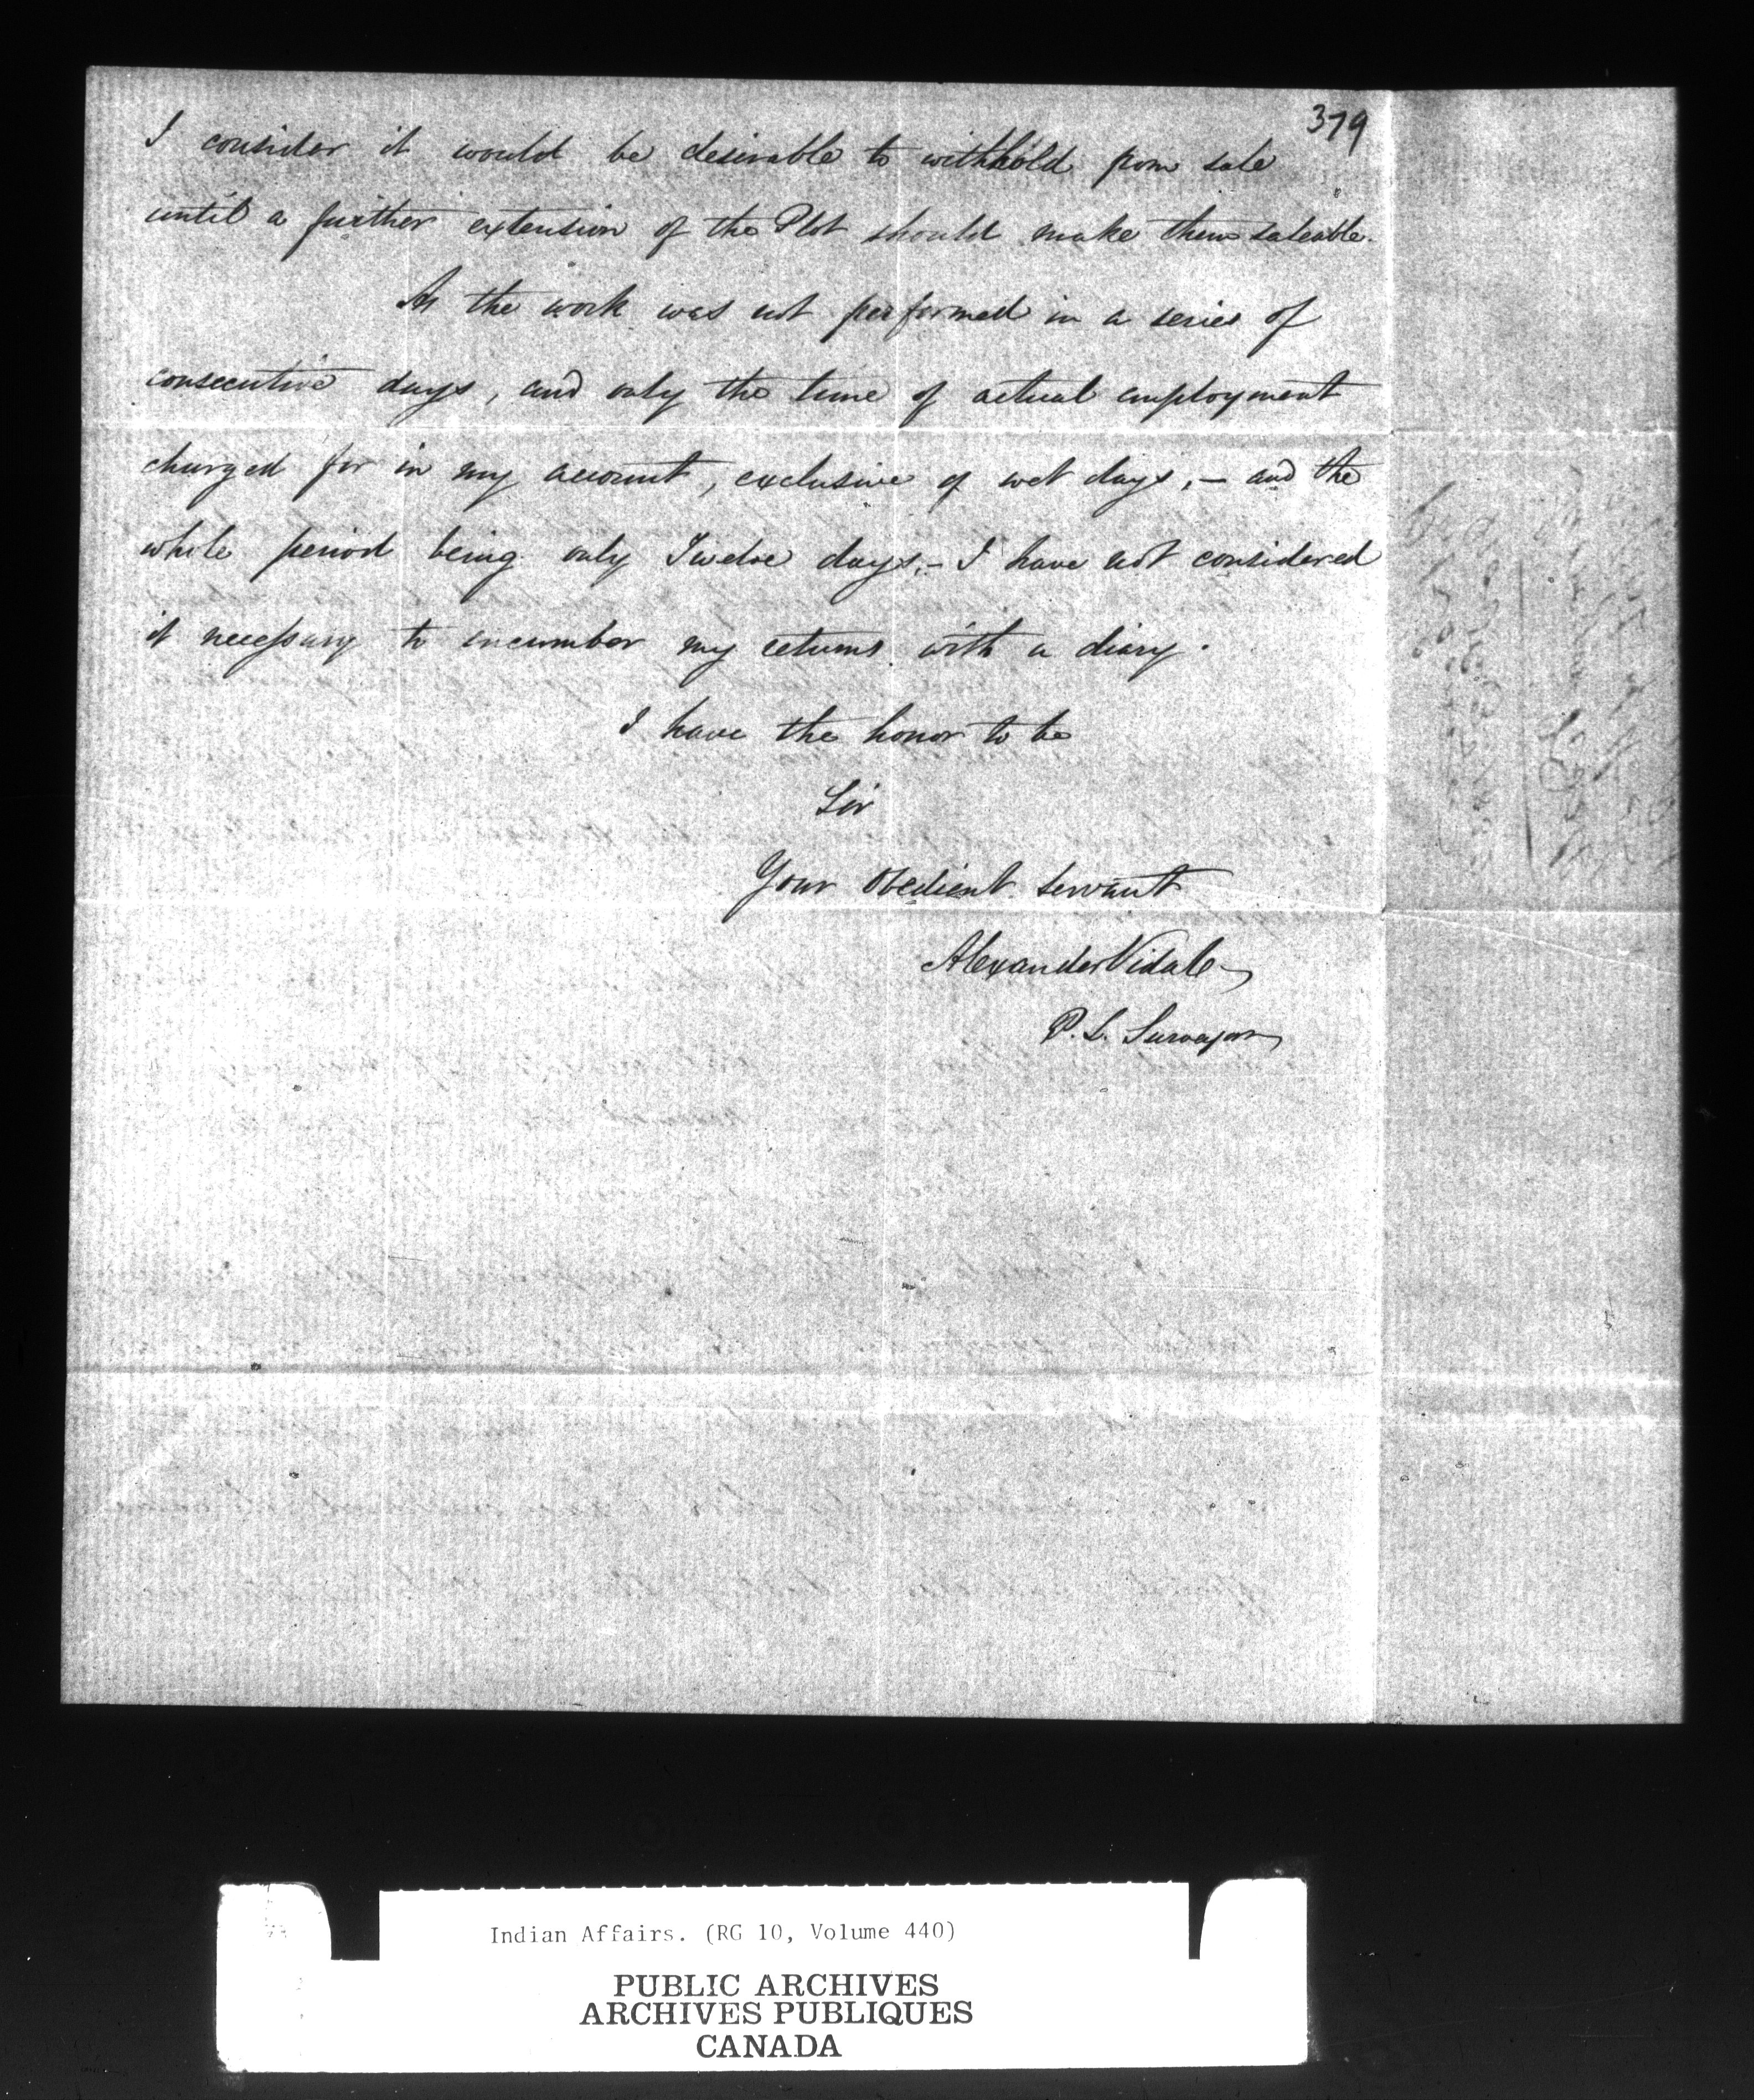 379
I consider it would be desirable to withhold from sale
until a further extension of the Plot should make them saleable.
As the work was not performed in a series of
consecutive days, and only the time of actual employment
charged for in my account, exclusive of wet days, — and the
whole period being only Twelve days, — I have not considered
it necessary to incumber my returns with a diary.
I have the honor to be
Sir
Your Obedient Servant
Alexander Vidal
P. L. Surveyor
Indian Affairs. (RG 10, Volume 440)
PUBLIC ARCHIVES
ARCHIVES PUBLIQUES
CANADA